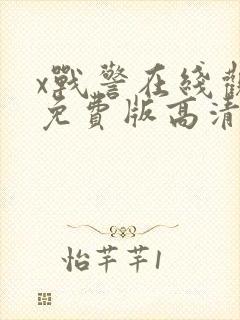 x戰警在綫觀
免費版高清
怡芊芊1